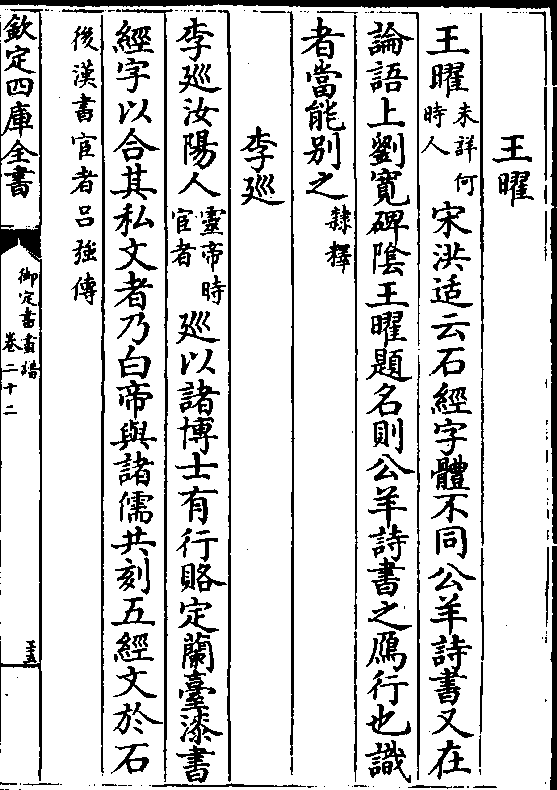 王曜
王曜未詳何時人宋洪适云石經字體不同公羊詩書又在
論語上劉寛碑陰王曜題名則公羊詩書之鴈行也識
者當能別之隸釋
李廵
李廵汝陽人靈帝時宦者廵以諸博士有行賂定蘭臺漆書
經字以合其私文者乃白帝與諸儒共刻五經文於石
後漢書宦者吕强傳
欽定四庫全書
御定書畫譜
卷二十二